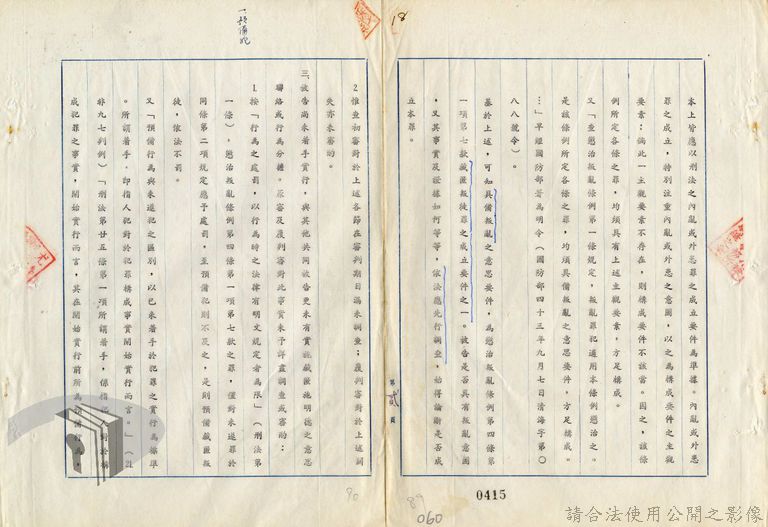 本上皆應以刑法之內亂或外患罪之成立要件為準據。內亂或外患
罪之成立，特別注重內亂或外患之意圖，以之為構成要件之主觀
要素；倘此一主觀要素不存在，則構成要件不該當。因之，該條
例所定各條之罪，均須具有上述主觀要素，方足構成。
又「查懲治叛亂條例第一條規定，叛亂罪犯適用本條例懲治之。
是該條例所定各條之罪，均須具備叛亂之意思要件，方足構成。
…」早經國防部著為明令（國防部四十三年九月七日清海字第〇
八八號令）。
基於上述，可知具備叛亂之意思要件，為懲治叛亂條例第四條第
一項第七款藏匿叛徒罪之成立要件之一。被告是否具有叛亂意圖
，又其事實及證據如何等等，依法應先行調查，始得論斷是否成
立本罪。
第貳頁
2惟查初審對於上述各節在審判期日漏未調查；覆判審對於上述闕
失亦未審酌。
三、被告尚未著手實行，與其他共同被告更未有實施藏匿施明德之意思
聯絡或行為分擔。原審及覆判審對此事實未予詳盡調查或審酌：
1.按「行為之處罰，以行為時之法律有明文規定者為限」（刑法第
一條），懲治叛亂條例第四條第一項第七款之罪，僅對未遂罪於
同條第二項規定應予處罰，至預備犯則不及之，是則預備藏匿叛
徒，依法不罰。
又「預備行為與未遂犯之區別，以已未着手於犯罪之實行為標準
。所謂着手，即指人犯對於犯罪構成事實開始實行而言。」（21
非九七判例）「刑法第廿五條第一項所謂着手，係指犯人對於構
成犯罪之事實，開始實行而言，其在開始實行前所為預備行為，
18
0415
90
89
060
請合法使用公開之影像